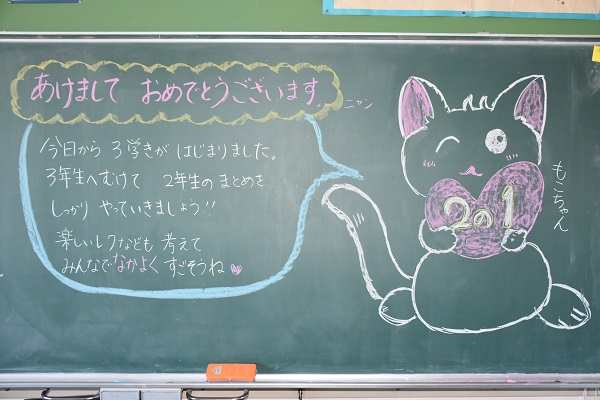 あけまして おめでとうございます。
ニャン
今日から 3学きが はじまりました。
3年生へむけて 2年生の まとめを
しっかり やっていきましょう!!
楽しいレクなども 考えて
みんなで なかよく すごそうね
201
もこちゃん